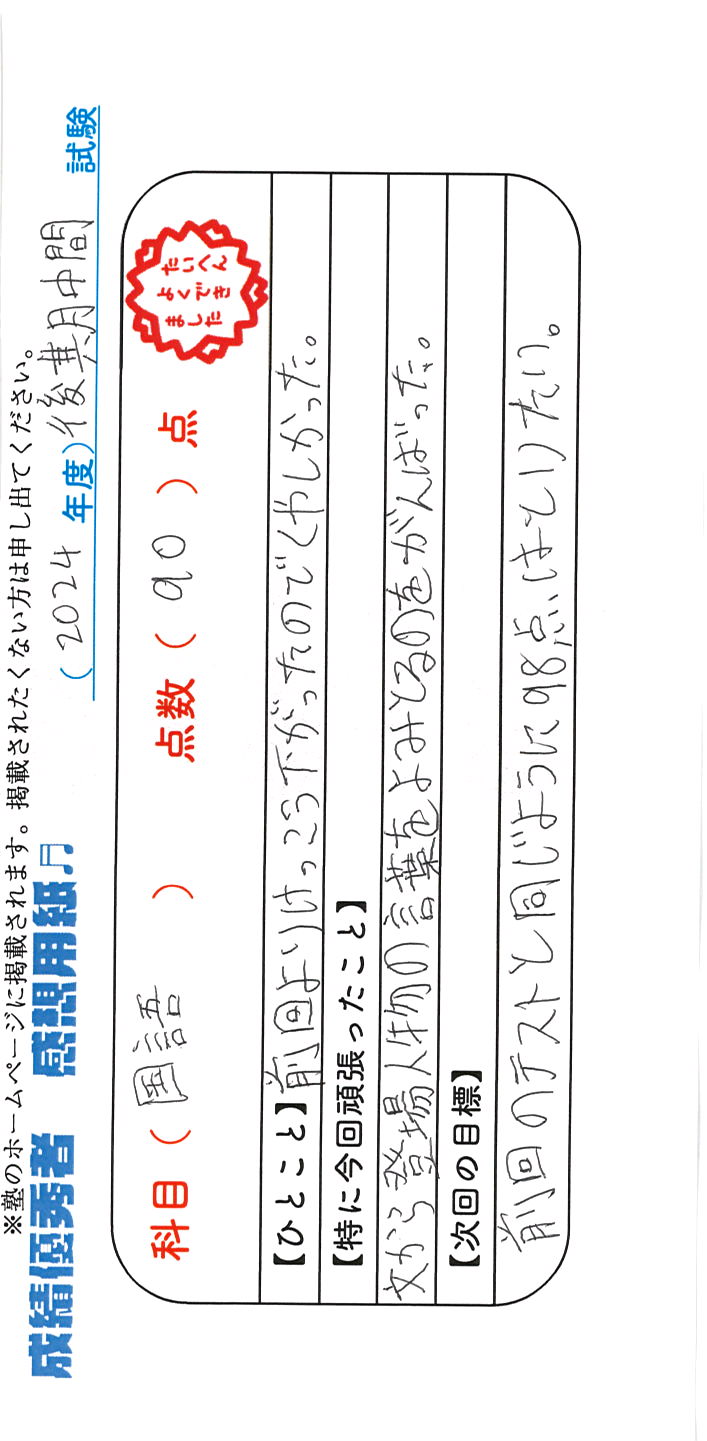 ※塾のホームページに掲載されます。掲載されたくない方は申し出てください。
成績優秀者 感想用紙♬ (2024年度)後期中間試験
科目(国語) 点数(90)点
たいへん
よくでき
ました
【ひとこと】前回よりけっこう下がったのでくやしかった。
【特に今回頑張ったこと】
文から登場人物の言葉をよみとるのをがんばった。
【次回の目標】
前回のテストと同じように98点はとりたい。